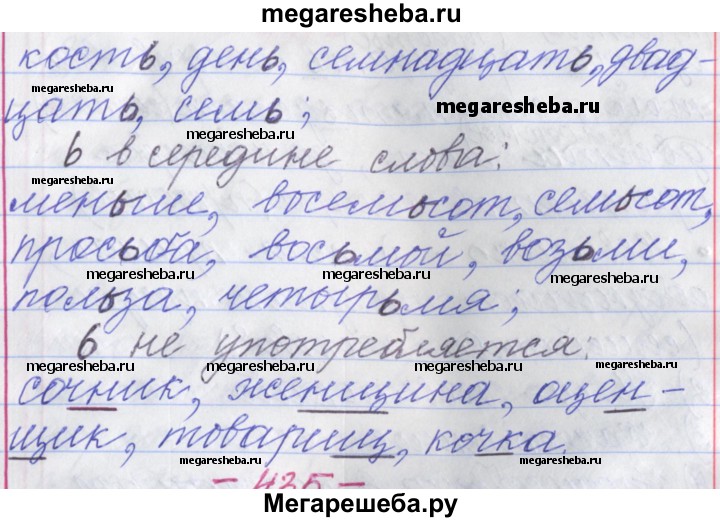 megaresheba.ru
кость, день, семнадцать, двад-
megaresheba.ru
цать, семь;
megaresheba.ru
megaresheba.ru
ь в середине слова:
меньше, восемьсот, семьсот,
просьба, восьмой, возьми,
megaresheba.ru megaresheba.ru
польза, четырьмя;
ь не употребляется:
megaresheba.ru megaresheba.ru megaresheba.ru
сочник, женщина, оцен-
щик, товарищ, кочка.
megaresheba.ru megaresheba.ru
- 435 -
Мегарешеба.ру